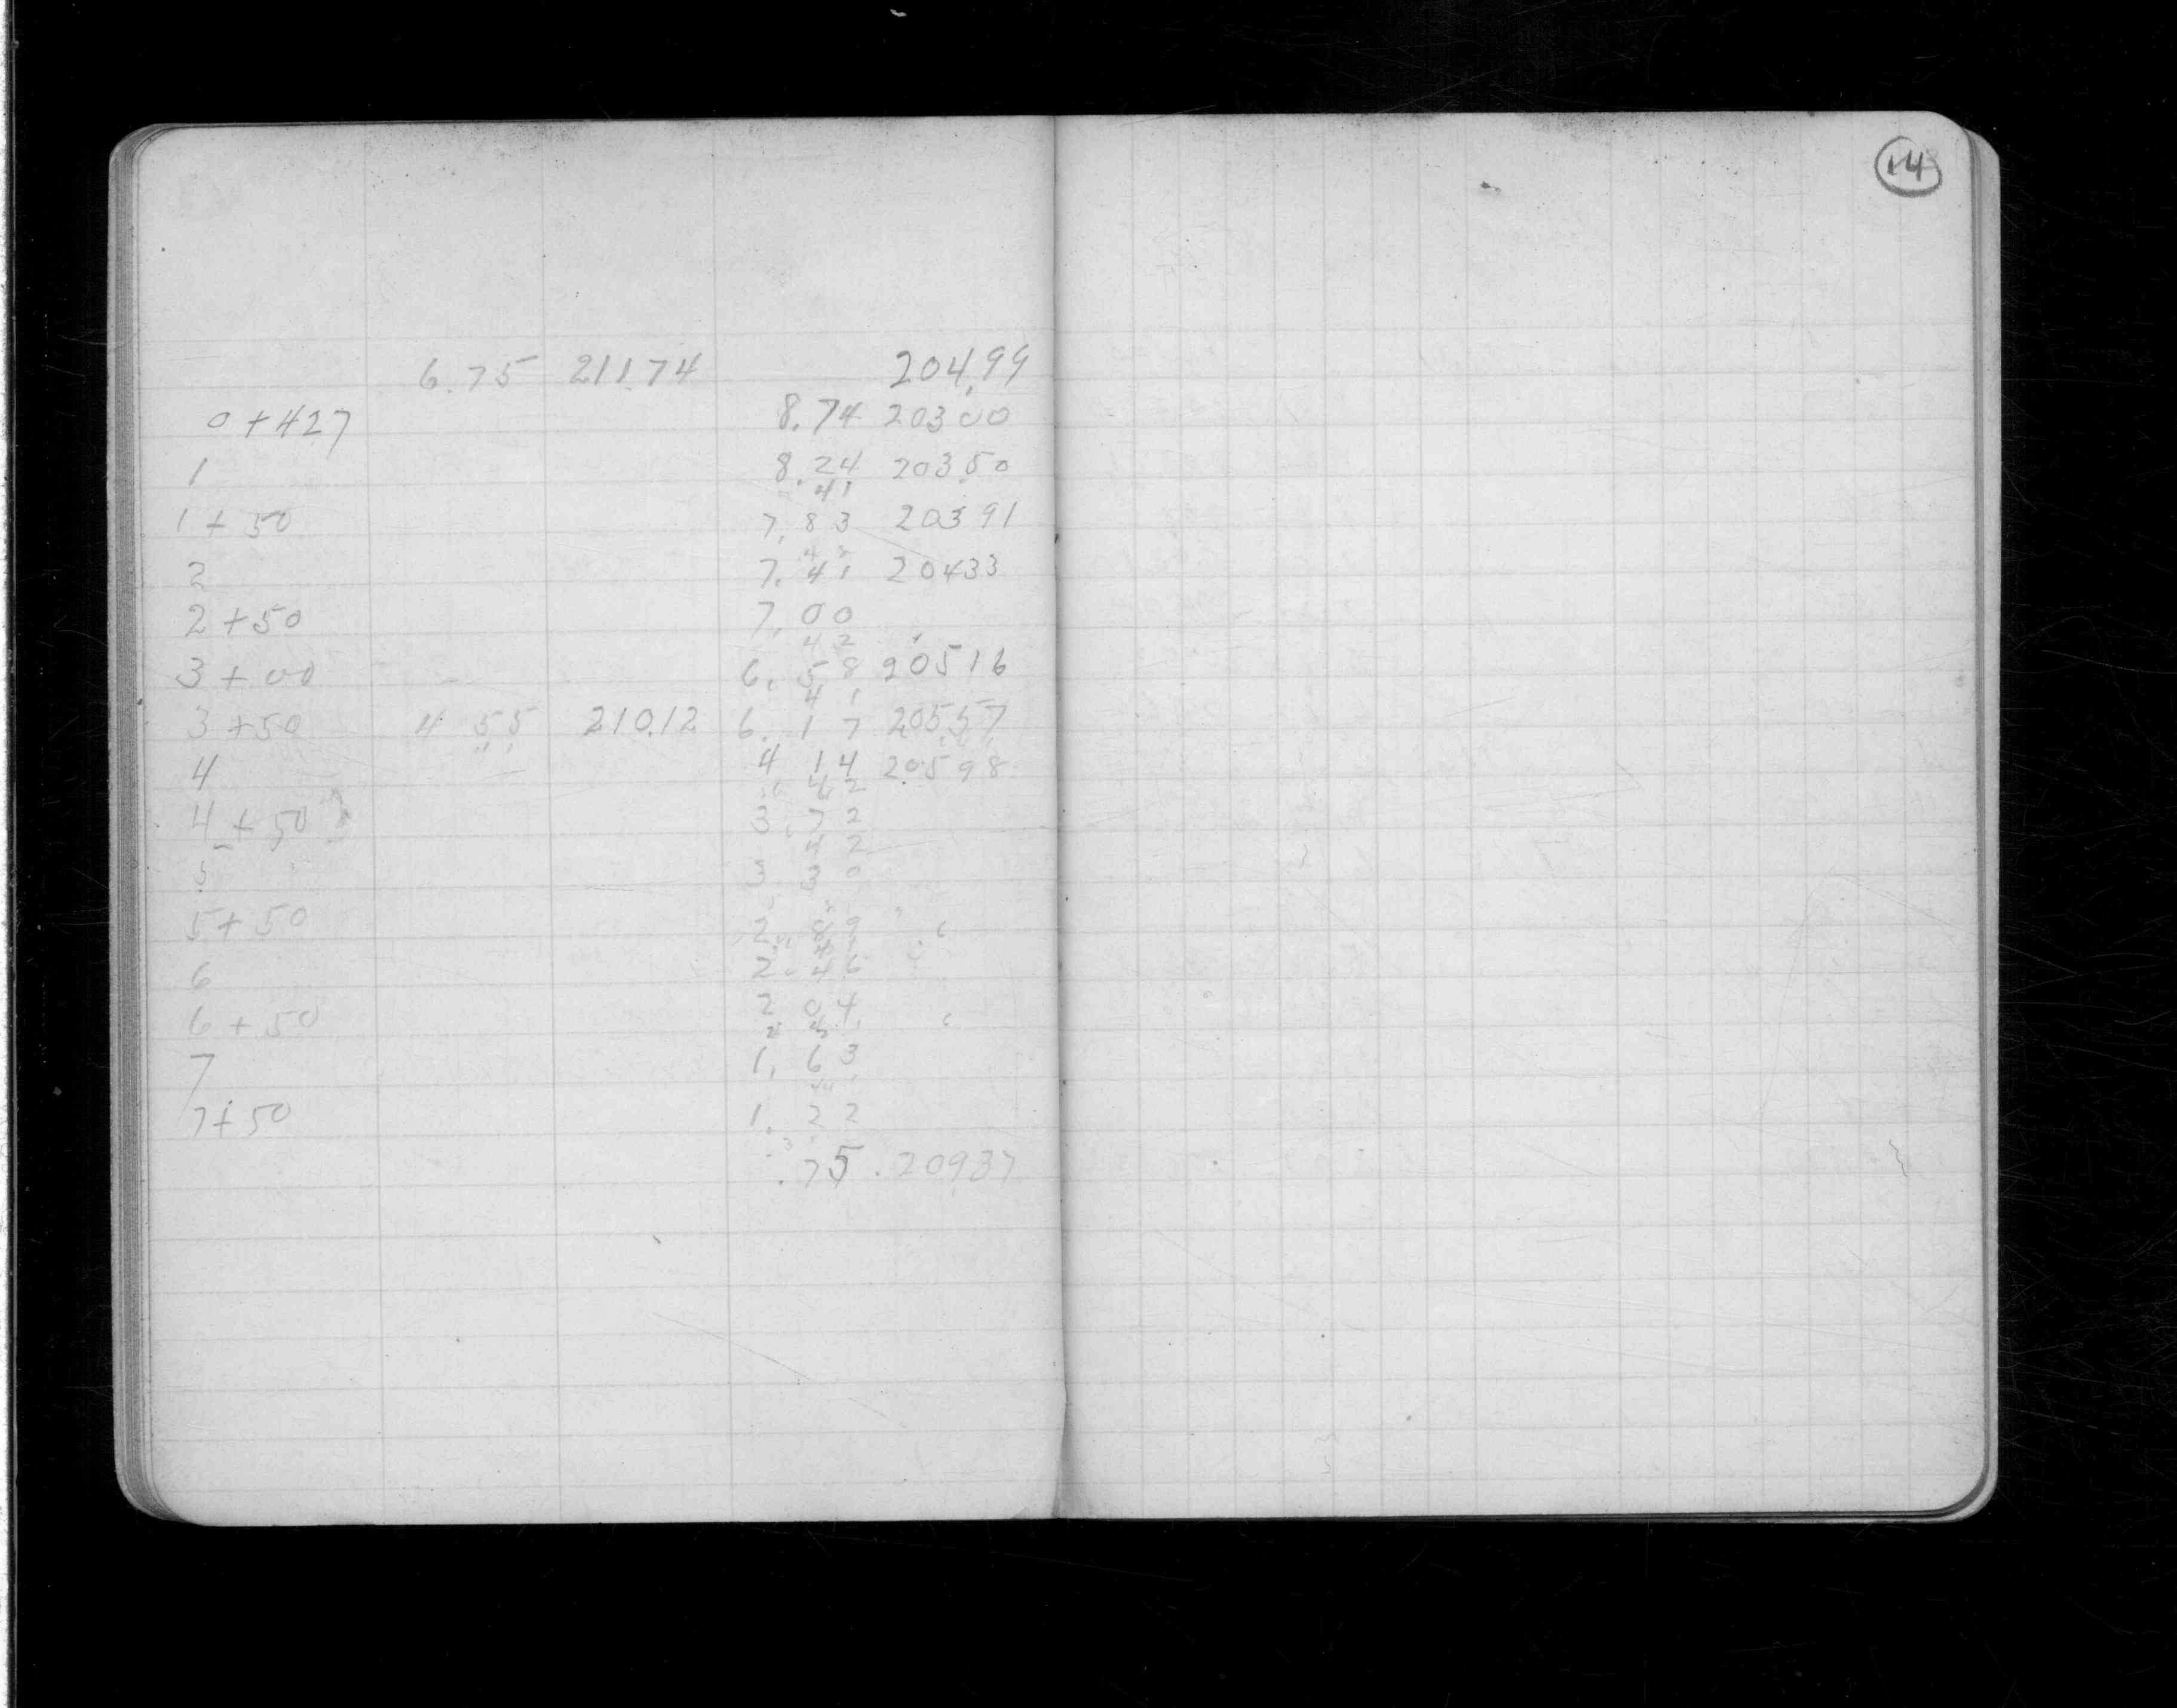 14
6.75 211.74 204.99
0+427 8.74 20300
1 8.24 203.50
41
1+50 7.83 20391
42
2 7.41 20433
2+50 7.00
42
3+00 6.58 20516
41
3+50 4 55 210.12 6.17 20557
4 4 14 20598
42
4+50 3.72
42
5 3.30
5+50 2.89
6 2.46
6+50 2 04
7 1.63
7+50 1.22
.75 . 20937